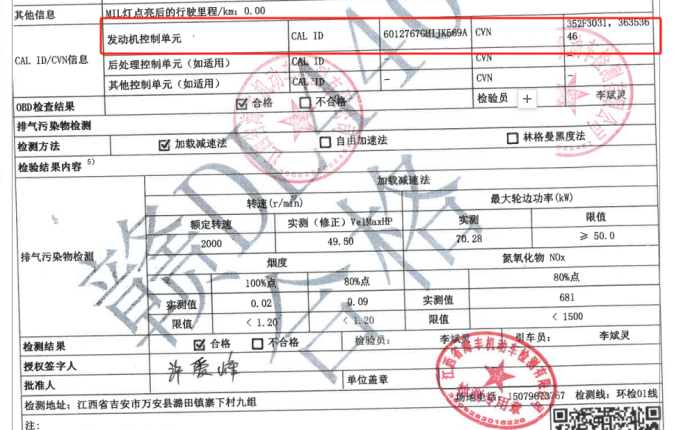 其他信息 MIL灯点亮后的行驶里程/km: 0.00
CAL ID/CVN信息
发动机控制单元 CAL ID 6012767GHIJK569A CVN 352F3031, 36353646
后处理控制单元(如适用) CAL ID - CVN -
其他控制单元(如适用) CAL ID - CVN -
OBD检查结果 ☑合格 □不合格 检验员 李斌灵
排气污染物检测
检测方法 ☑加载减速法 □自由加速法 □林格曼黑度法
检验结果内容 5)
排气污染物检测
加载减速法
转速(r/min) 最大轮边功率(kW)
额定转速 实测(修正)VelMaxHP 实测 限值
2000 49.50 70.28 ≥ 50.0
烟度 氮氧化物 NOx
100%点 80%点 80%点
实测值 0.02 0.09 实测值 681
限值 < 1.20 < 1.20 限值 < 1500
检测结果 ☑合格 □不合格 检验员: 李斌灵 引车员: 李斌灵
授权签字人
批准人 单位盖章
检测地址: 江西省吉安市万安县潞田镇寨下村九组 场地电话: 15079673767 检测线: 环检01线
注:
合格
检测专用章